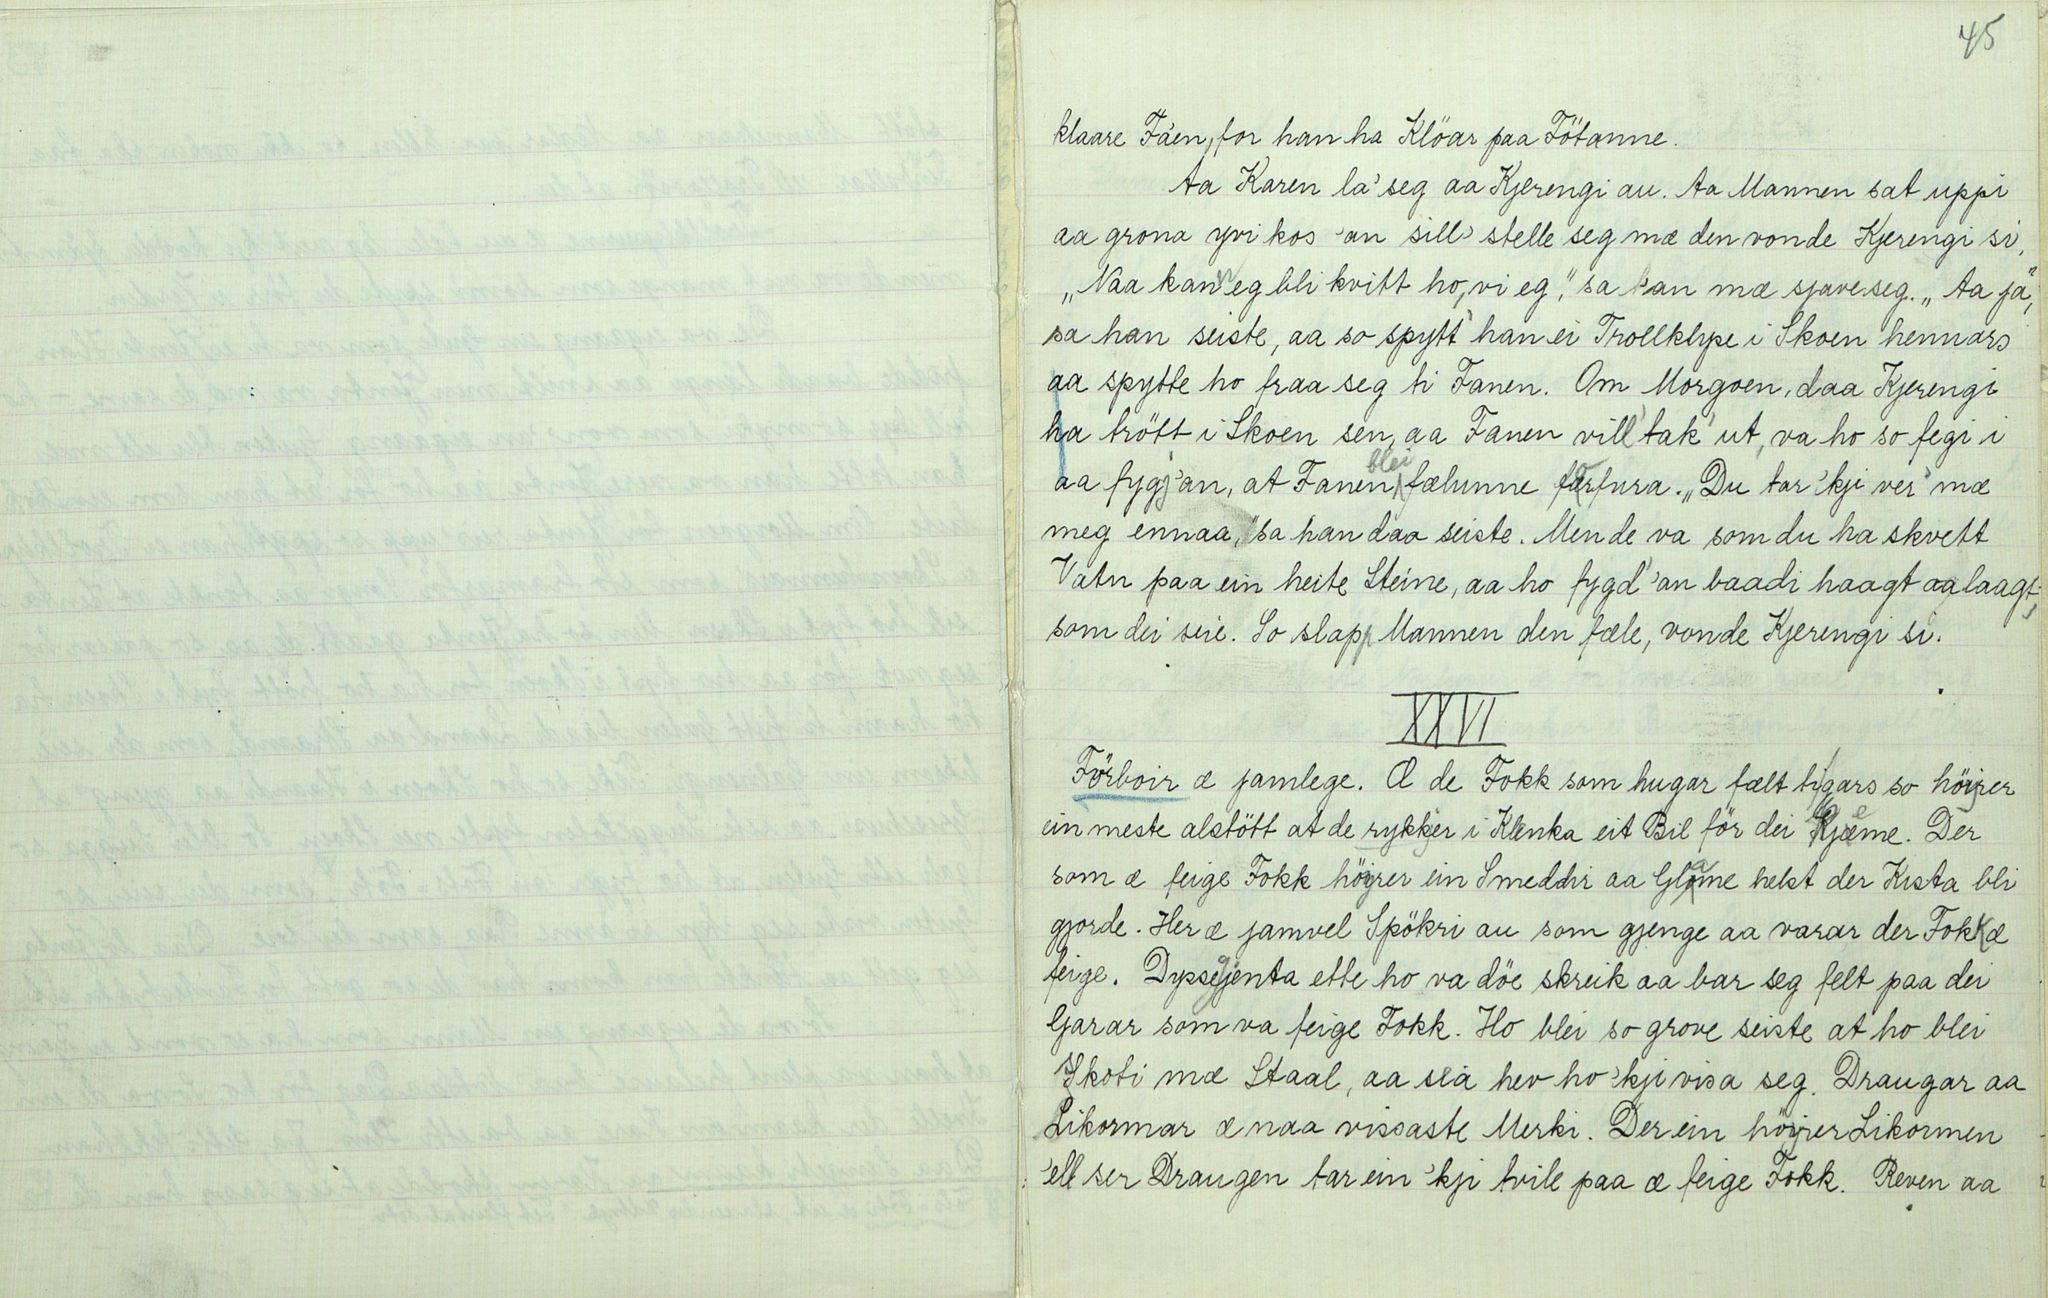 45
klaare Fáen, for han ha Klöar paa Fötanne.
Aa Karen la' seg aa Kjerengi au. Aa Mannen sat uppi
aa grona yvi kos 'an sill' stelle seg mæ den vonde Kjerengi si,
„Naa kann eg bli kvitt ho, vi eg," sa han mæ sjave seg. „Aa ja,"
sa han seiste, aa so spytt' han ei Trollklype i Skoen hennars
aa spytte ho fraa seg ti Fanen. Om Morgoen, daa Kjerengi
ha trött i Skoen sen, aa Fanen vill' tak' ut, va ho so fegi i
aa fygj 'an, at Fanen blei fælunne forfura. „Du tar 'kji ver' mæ
meg ennaa," sa han daa seiste. Men de va som du ha skvett
Vatn paa ein heite Steine, aa ho fygd' 'an baadi haagt aa laagt,
som dei seie. So slapp Mannen den fæle, vonde Kjerengi si.
XXVI
Förboir æ jamlege. Æ de Fokk som hugar fælt tigars so höirer
ein meste alstött at de rykkjer i Klenka eit Bil för dei kjeme. Der
som æ feige Fokk höirer ein Smeddir aa Glame helst der Kista bli
gjorde. Her æ jamvel Spökri au som gjenge aa varar der Fokk æ
feige. Dypsegjenta ette ho va döe skreik aa bar seg felt paa dei
Garar som va feige Fokk. Ho blei so grove seiste at ho blei
Skoti mæ Staal, aa sia hev ho 'kji visa seg. Draugar aa
Likormar æ naa vissaste Merki. Der ein höirer Likormen
'ell ser Draugen tar ein 'kji tvile paa æ feige Fokk. Reven aa